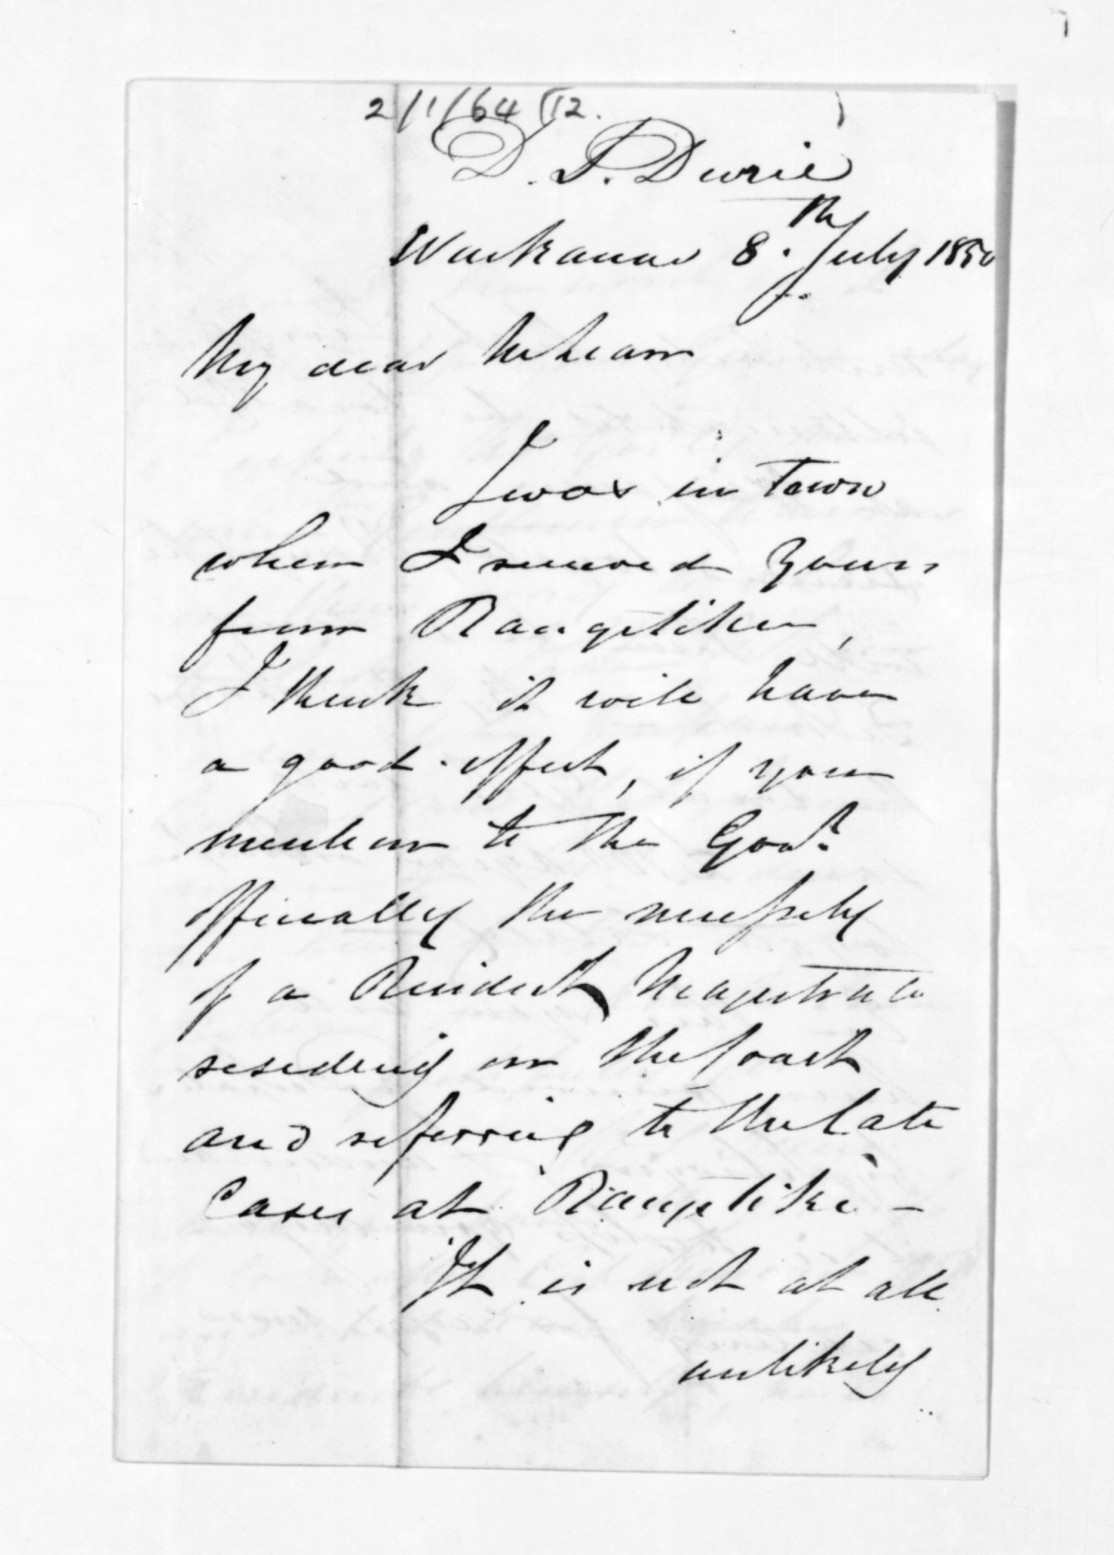 2/1/64 12.
D. S. Durie
Waikanae 8.th July 1850
My dear McLean
I was in Town
when I received yours
from Rangitikei,
I think it will have
a good effect, if you
mention to the Govt.
officially the necessity
of a Resident Magistrate
residing on the Coast
and referring to the late
Cases at Rangitiki -
It is not at all
unlikely